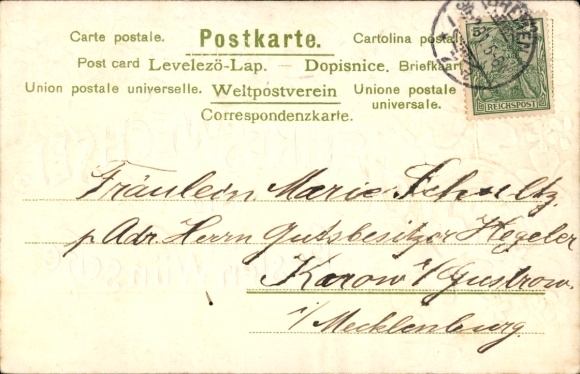 Carte postale. Postkarte. Cartolina postale
Post card Levelező-Lap. — Dopisnice. Briefkaart
Union postale universelle. Weltpostverein Unione postale universale.
Correspondenzkarte.
BREMEN
REICHSPOST
Fräulein Marie Schultz.
p. Adr. Herrn Gutsbesitzer Hegeler
Karow i/ Gustrow.
i/ Mecklenburg.